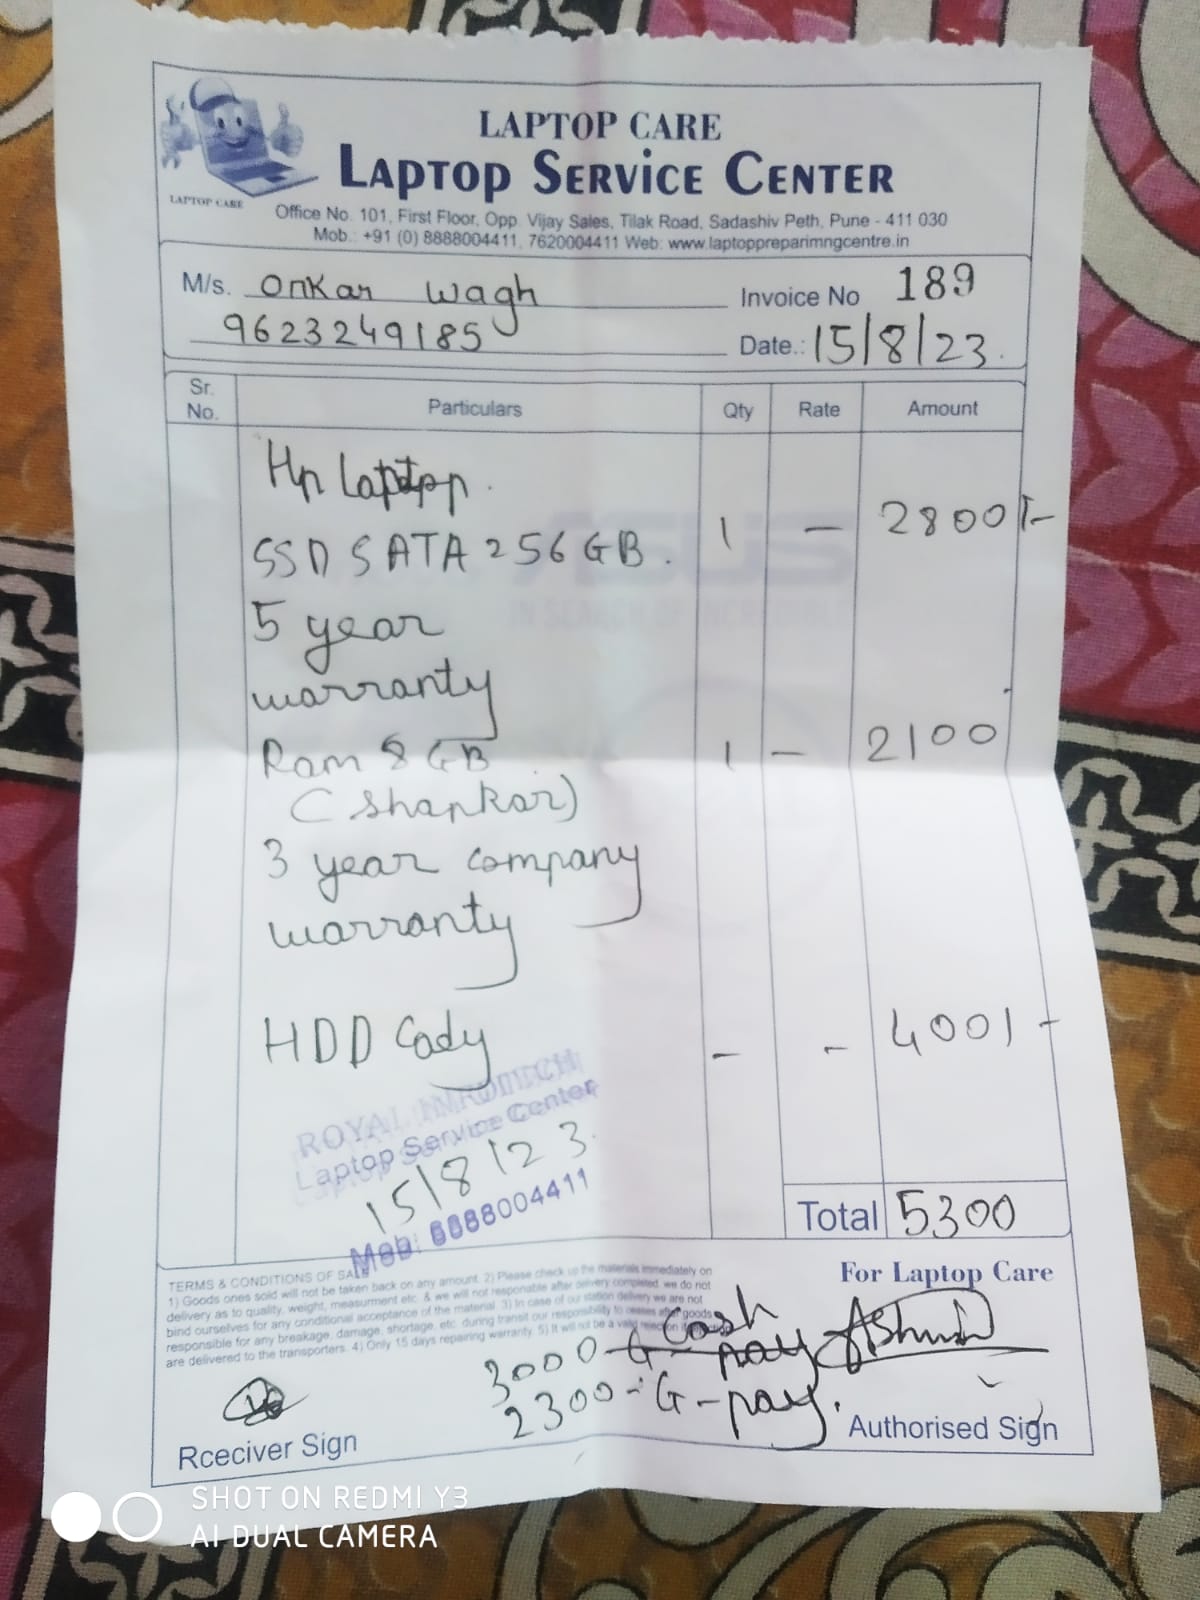 LAPTOP CARE
LAPTOP CARE
LAPTOP SERVICE CENTER
Office No. 101, First Floor, Opp. Vijay Sales, Tilak Road, Sadashiv Peth, Pune - 411 030
Mob.: +91 (0) 8888004411, 7620004411 Web: www.laptoppreparimngcentre.in
M/s. Onkar Wagh
Invoice No 189
9623249185
Date.: 15/8/23.
Sr. No. Particulars Qty Rate Amount
Hp Laptop.
SSD SATA 256 GB. 1 – 2800/-
5 year
warranty
Ram 8 GB 1 – 2100
(Shankar)
3 year company
warranty
HDD Cady – – 400/-
ROYAL
Laptop Service Center
15/8/23.
Mob: 8888004411
Total 5300
TERMS & CONDITIONS OF SALE
For Laptop Care
1) Goods ones sold will not be taken back on any amount. 2) Please check up the materials immediately on
delivery as to quality, weight, measurment etc. & we will not responsable after delivery completed. we do not
bind ourselves for any conditional acceptance of the material. 3) In case of our station delivery we are not
responsible for any breakage, damage, shortage, etc. during transit our responsibility to ceases after goods
are delivered to the transporters. 4) Only 15 days repairing warranty. 5) It will not be a valid
3000 - cash
G pay
2300 - G-pay.
Rceciver Sign
Authorised Sign
SHOT ON REDMI Y3
AI DUAL CAMERA